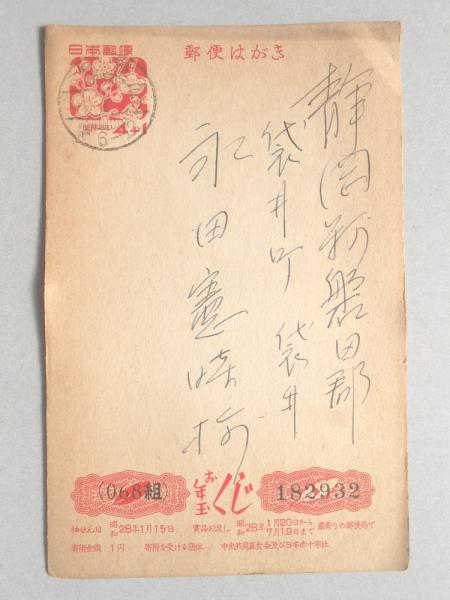 日本郵便
郵便はがき
4+1
静岡県磐田郡
袋井町 袋井
永田憲
様
(068組)
お年玉くじ
182932
抽せん日 昭和28年1月15日 賞品お渡し 昭和28年1月20日から7月19日まで 最寄りの郵便局で
寄附金額 1円 寄附を受ける団体 中央共同募金会及び日本赤十字社